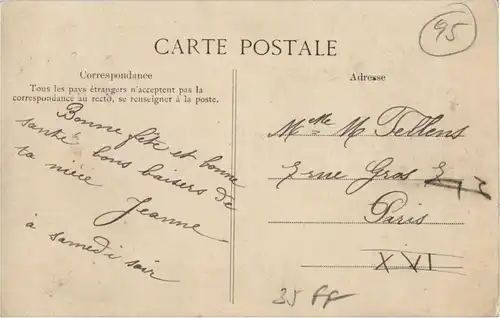 95
CARTE POSTALE
Correspondance
Tous les pays étrangers n'acceptent pas la
correspondance au recto, se renseigner à la poste.
Bonne fête et bonne
santé bons baisers de
ta nièce
Jeanne
à samedi soir
Adresse
Melle M Tellens
rue Gros
Paris
XVI
35 FF